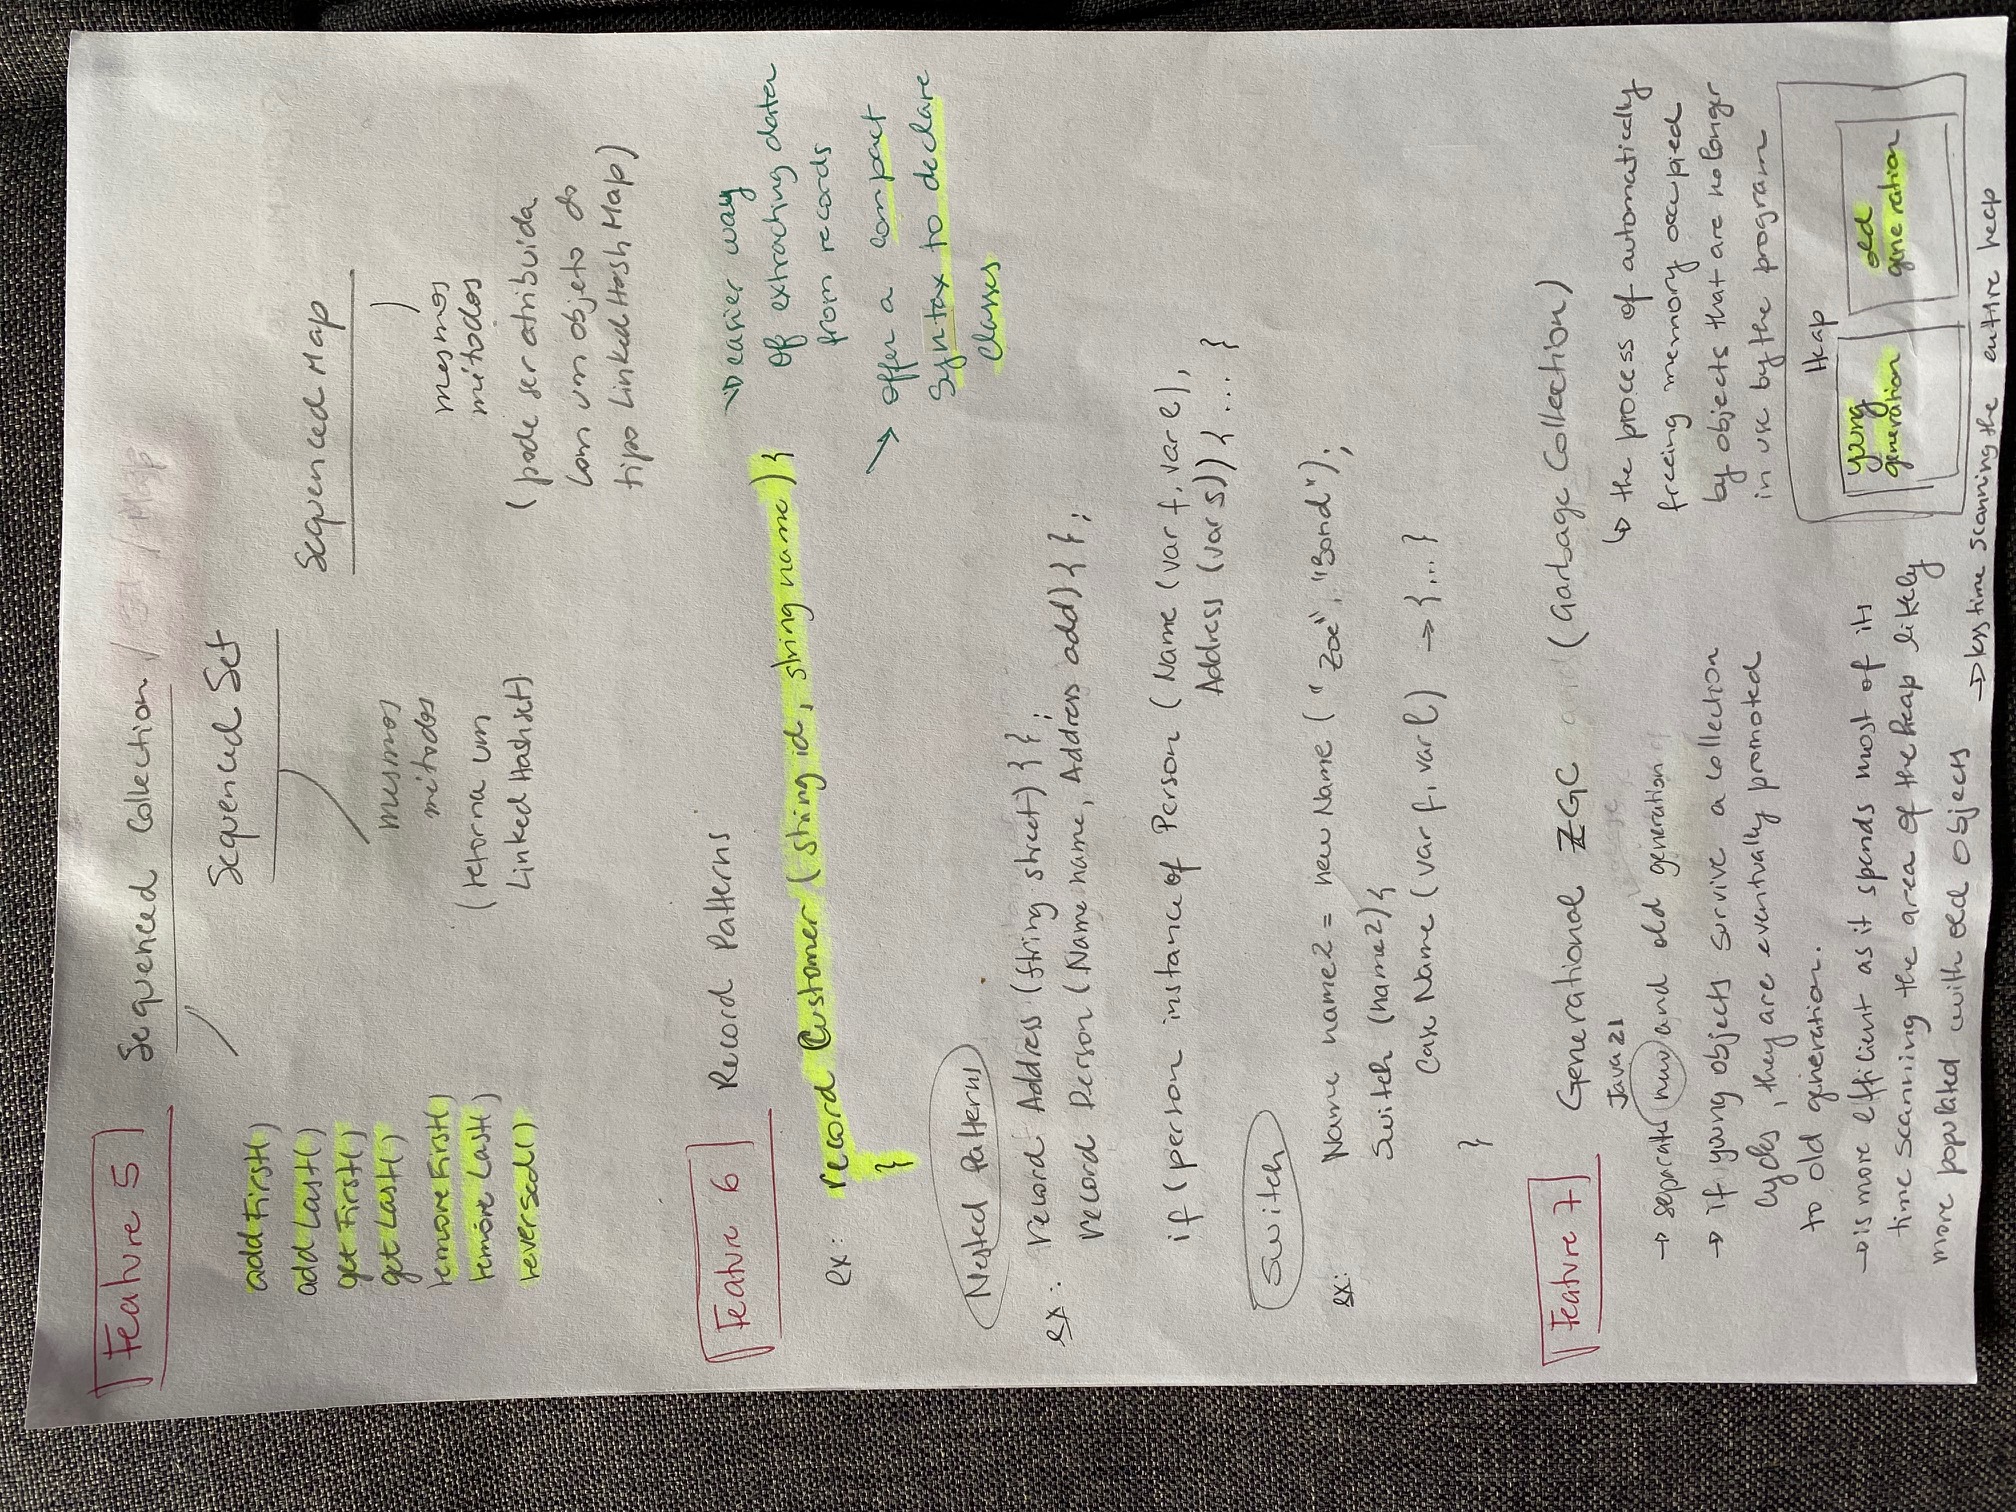 Feature 5
Sequenced Collection / Set / Map
addFirst()
addLast()
getFirst()
getLast()
removeFirst()
removeLast()
reversed()
Sequenced Set
mesmos
métodos
(retorna um
LinkedHashset)
Sequenced Map
mesmos
métodos
(pode ser atribuida
com um objeto do
tipo LinkedHashMap)
Feature 6
Record Patterns
ex: record Customer (string id, string name) {
}
easier way
of extracting data
from records
offer a compact
syntax to declare
classes
Nested Patterns
ex: record Address (string street) { };
record Person (Name name, Address add) { };
if (person instance of Person (Name (var f, var l),
Address (var s)) { ... }
Switch
ex: Name name2 = new Name ("Zoe", "Bond");
Switch (name2) {
Case Name (var f, var l) → {...}
}
Feature 7
Generational ZGC and (Garbage Collection)
Java 21
→ separates new and old generation
→ if young objects survive a collection
cycles, they are eventually promoted
to old generation.
→ is more efficient as it spends most of its
time scanning the area of the heap likely
more populated with old objects
↳ the process of automatically
freeing memory occupied
by objects that are no longer
in use by the program
Heap
young
generation
old
generation
→ less time scanning the entire heap